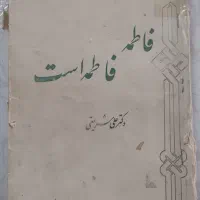 فاطمه
فاطمه است
دکتر علی شریعتی